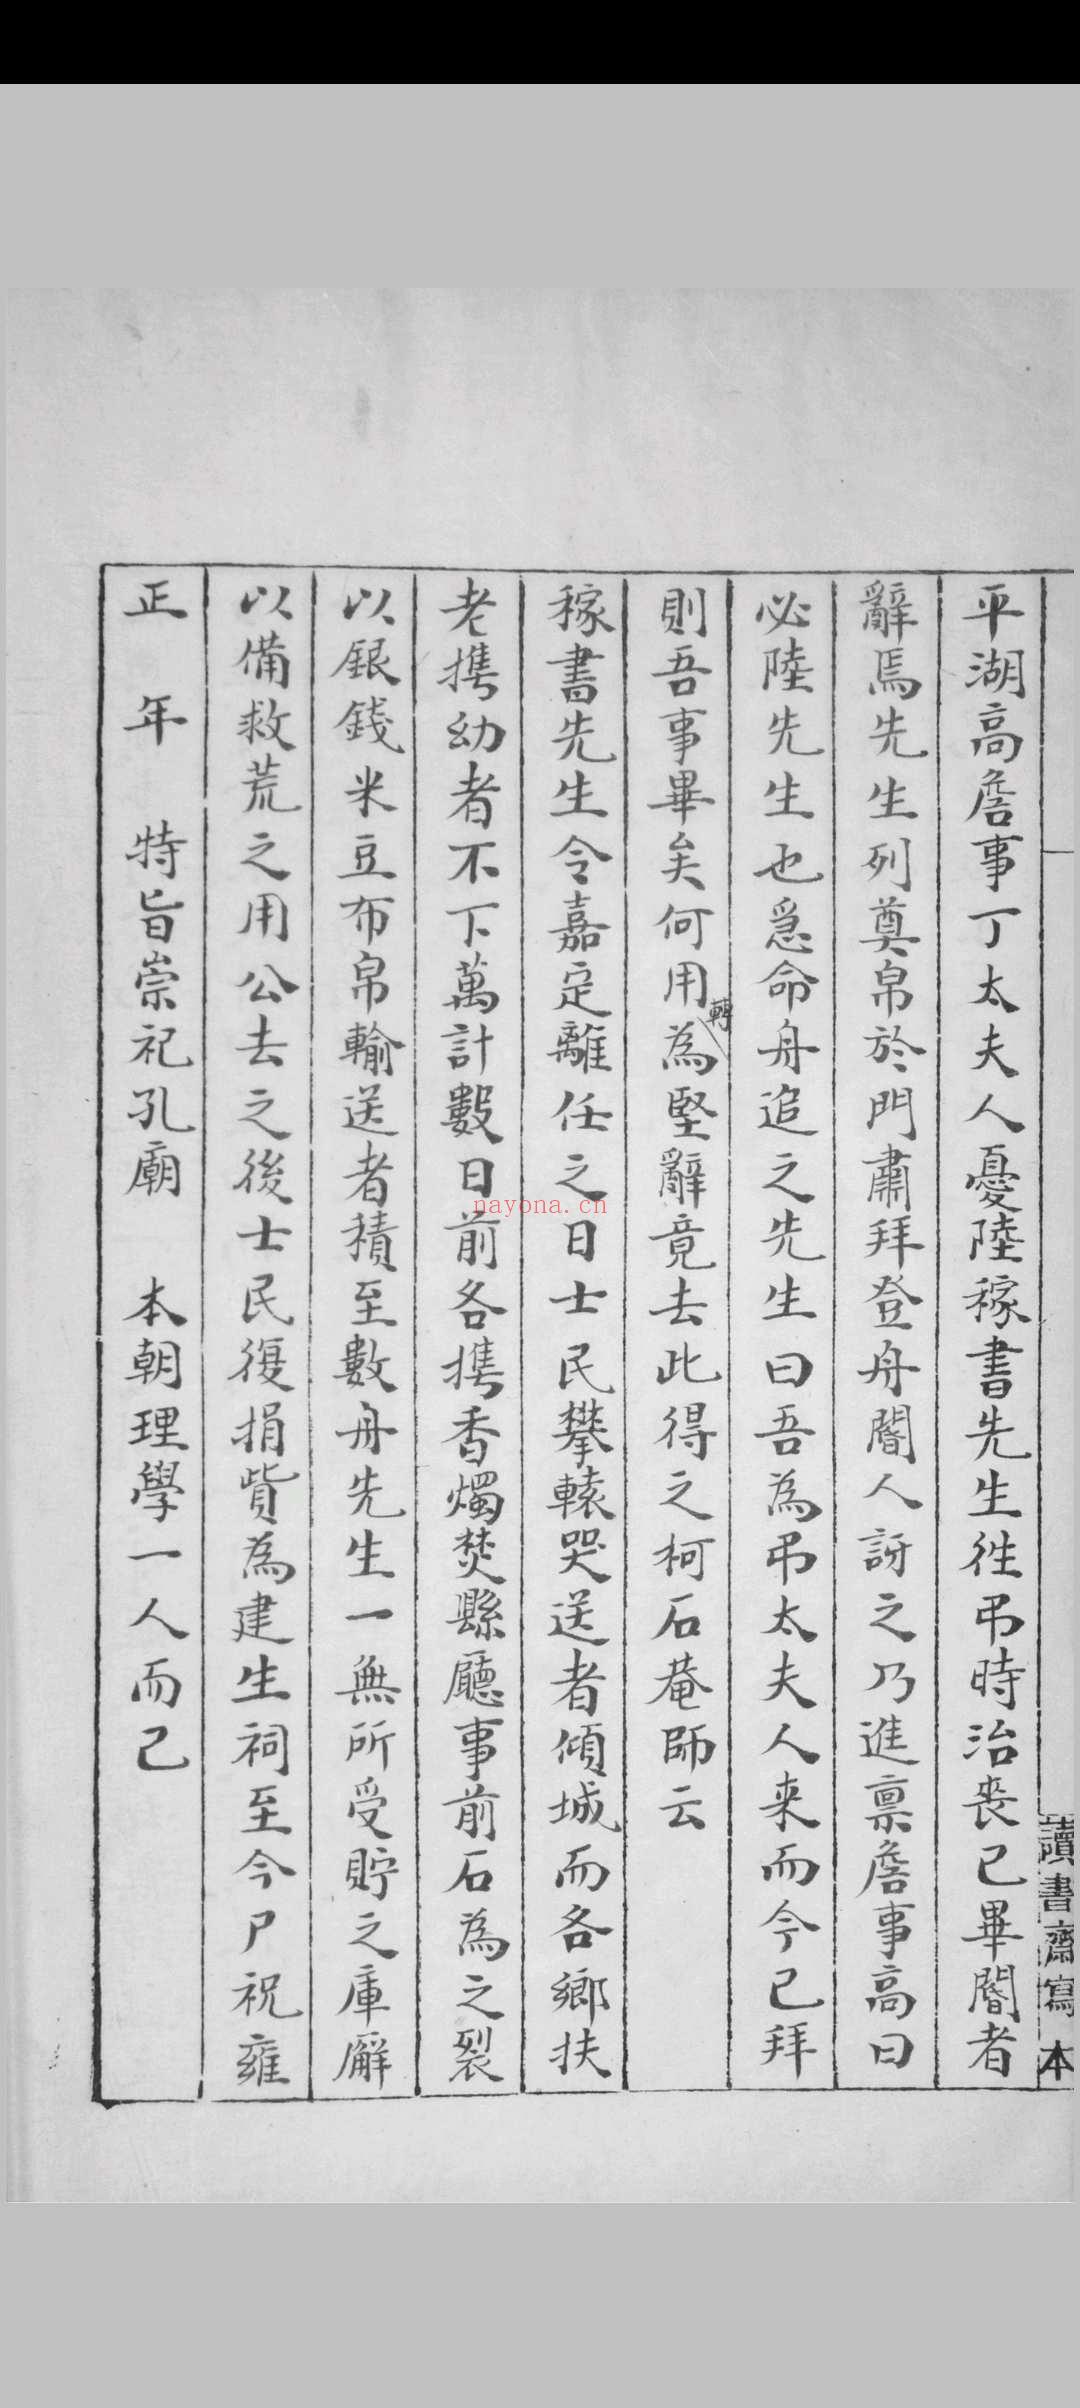 讀書齋寫本
平湖高詹事丁太夫人憂陸稼書先生往弔時治喪已畢閽者
辭焉先生列奠帛於門肅拜登舟閽人訝之乃進禀詹事高曰
必陸先生也急命舟追之先生曰吾為弔太夫人来而今已拜
則吾事畢矣何用轉為堅辭竟去此得之柯石菴師云
稼書先生令嘉定離任之日士民攀轅哭送者傾城而各鄉扶
老携幼者不下萬計數日前各携香燭焚縣廳事前石為之裂
以銀錢米豆布帛輸送者積至數舟先生一無所受貯之庫廨
以備救荒之用公去之後士民復捐貲為建生祠至今尸祝雍
正年特旨崇祀孔廟本朝理學一人而已
nayona.cn